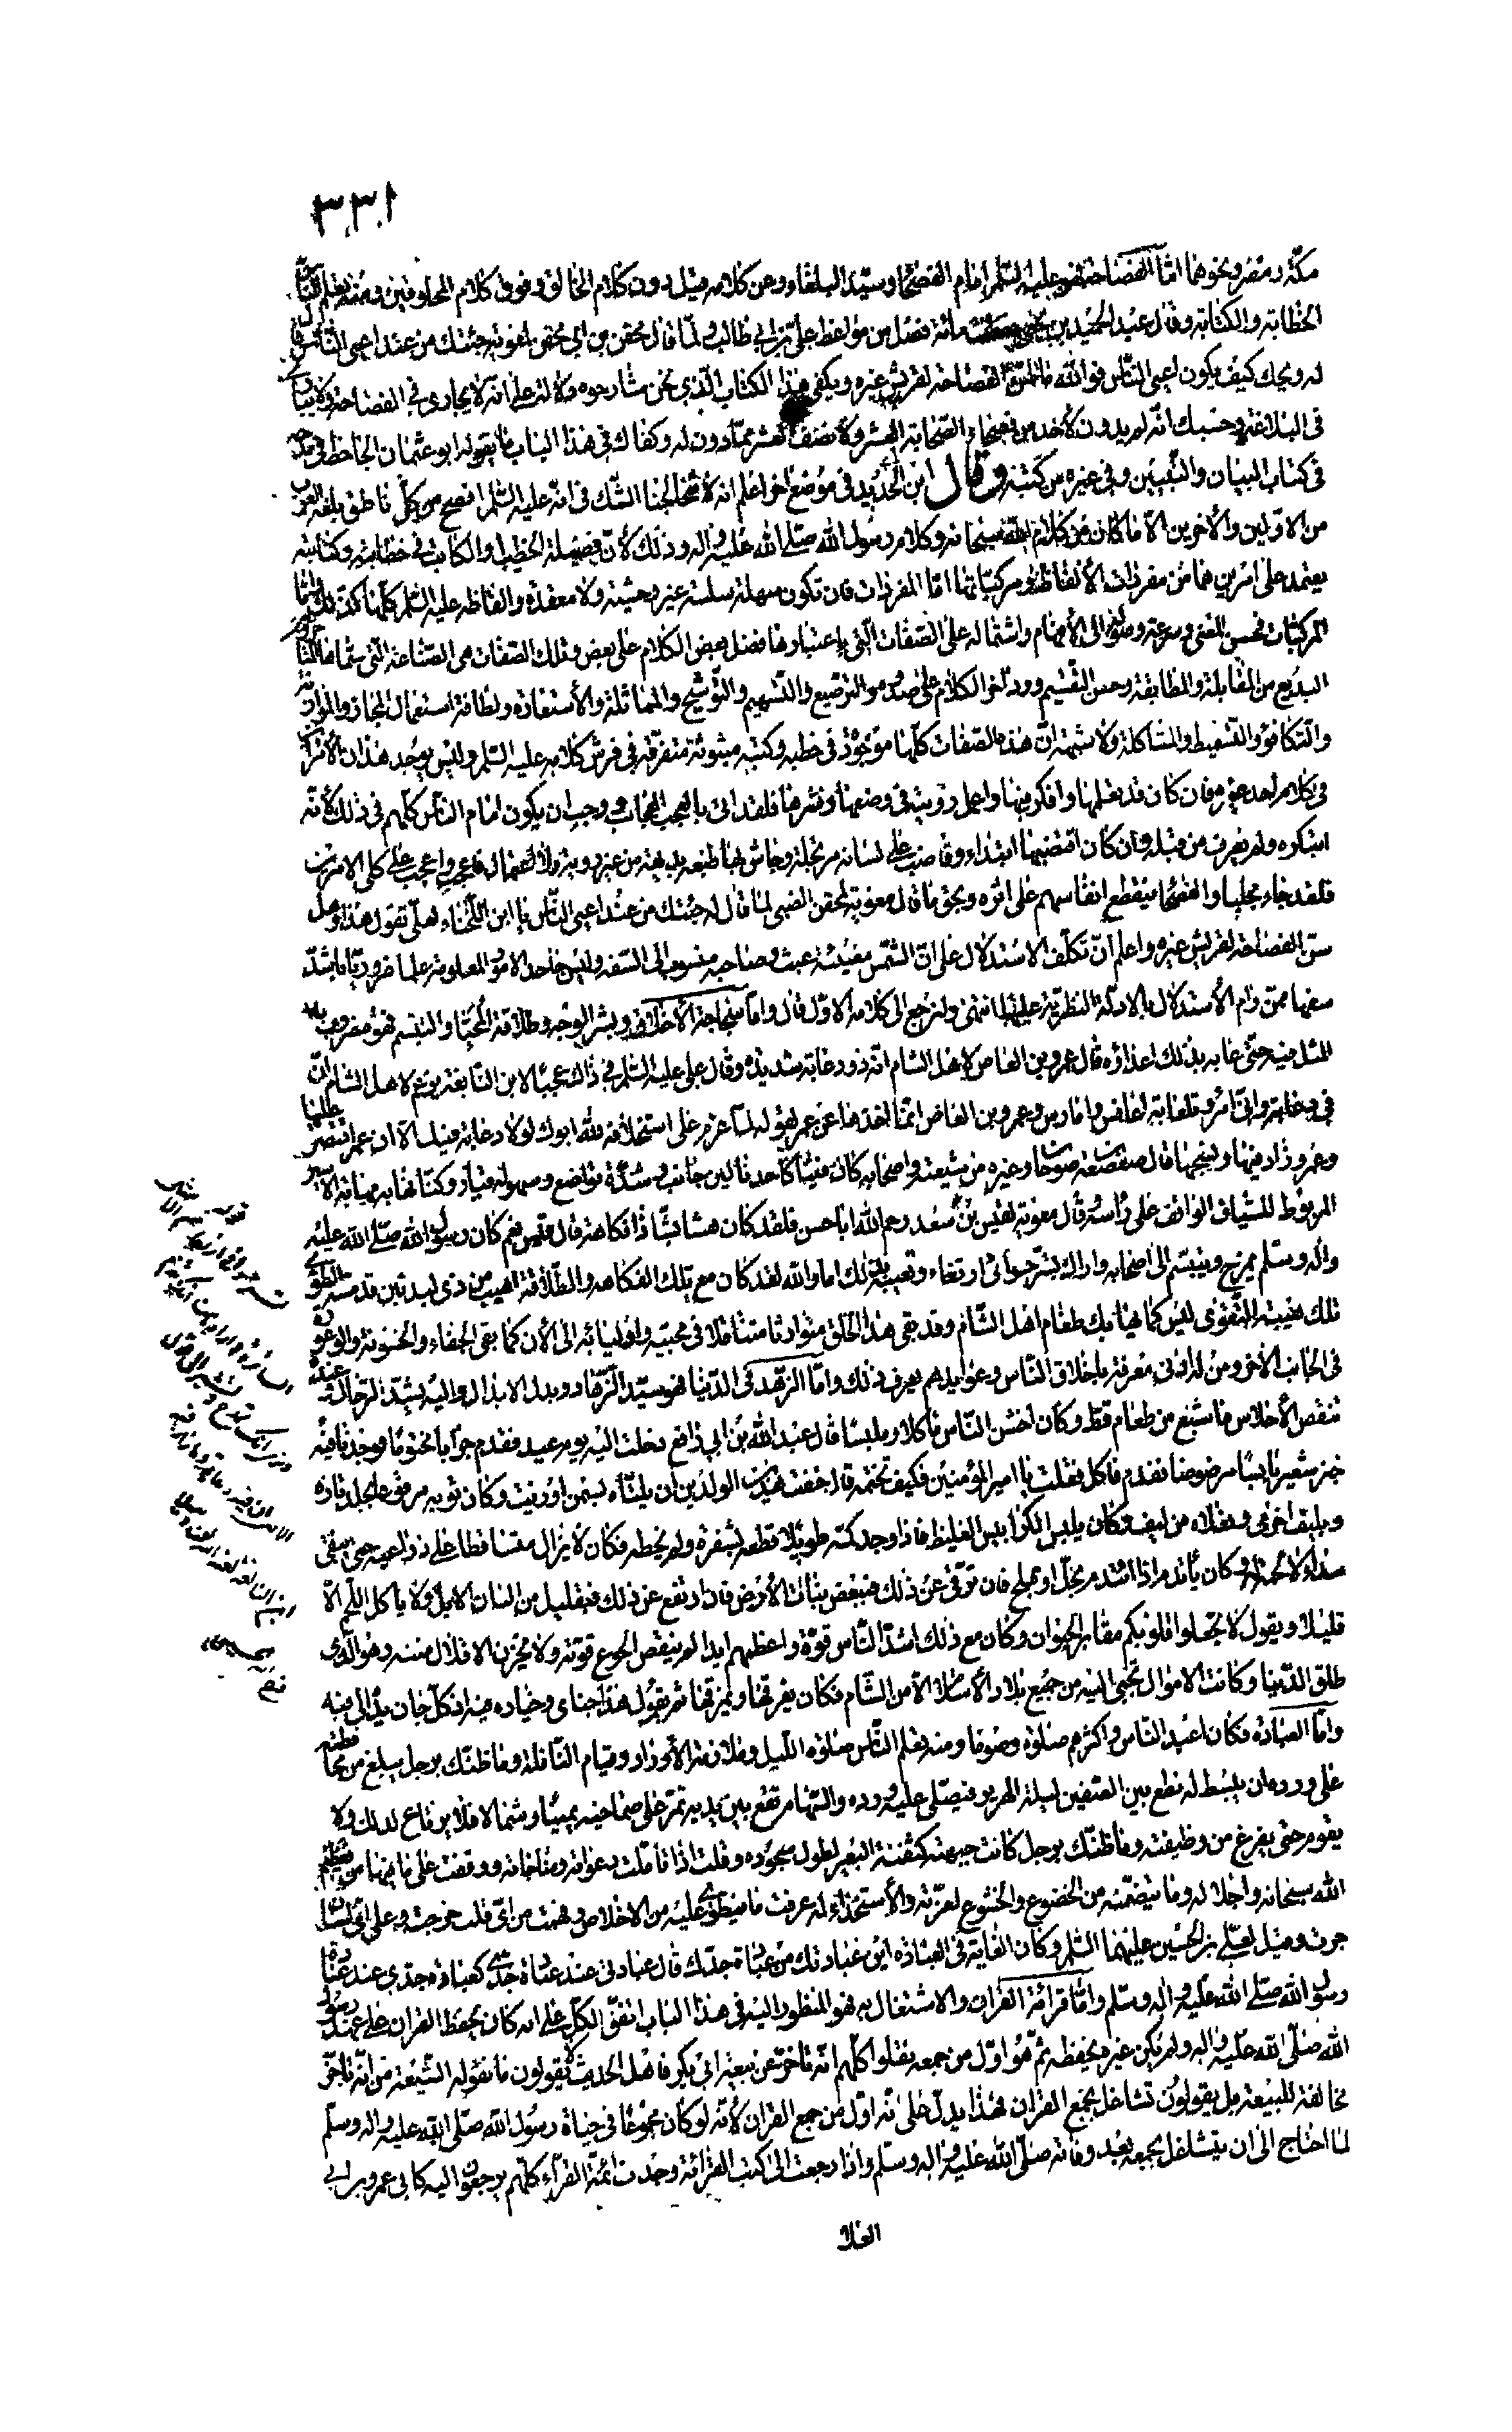 ٣٣١
مكة ومصر ونحوهما امّا الفصاحة فهو عليه السّلم امام الفصحا وسيّد البلغاء وعن كلامه قيل دون كلام الخالق وفوق كلام المخلوقين ومنه تعلم النّاس
الخطابة والكتابة وقال عبد الحميد بن يحيى حفظت مائة فصل من مواعظ علىّ بن ابى طالب ولمّا قال محقن بن ابى محقن لمعوية جئتك من عند اعيى النّاس قال
له ويحك كيف يكون اعيى النّاس فوالله ما سنّ الفصاحة لقريش غيره ويكفى هذا الكتاب الّذى نحن شارحوه دلالة على انّه لا يجارى فى الفصاحة ولا يبارى
فى البلاغة وحسبك انّه لم يدون لأحد من فصحاء الصّحابة العشر ولا نصف العشر ممّا دون له وكفاك فى هذا الباب ما يقوله ابو عثمان الجاحظ فى مدحه
فى كتاب البيان والتّبيين وفى غيره من كتبه وقال ابن الحديد فى موضع اخر اعلم انه لا يتخالجنا الشّك فى انّه عليه السّلم افصح من كلّ ناطق بلغة العرب
من الاوّلين والأخرين الّا ما كان من كلام الله سبحانه وكلام رسول الله صلّى الله عليه واله وذلك لأنّ فضيلة الخطيب والكاتب فى خطابته وكتابته
يعتمد على امرين هما من مفردات الألفاظ ومركباتها امّا المفردات فان تكون سهلة سلسة غير وحشية ولا معقدة والفاظه عليه السّلم كلّها كذلك وامّا
المركّبات فحسن المعنى وسرعة وصوله الى الأفهام واشتماله على الصّفات الّتى باعتبارها فضل بعض الكلام على بعض وتلك الصّفات هى الصّناعة الّتى سمّاها المتأخرون
البديع من المقابلة والمطابقة وحسن التّقسيم وردّ اخر الكلام على صدره والترصيع والتّسهيم والتّوشيح والمماثلة والأستعارة ولطافة استعمال المجاز والموازنة
والتكافؤ والتّسميط والمشاكلة ولا شبهة انّ هذه الصّفات كلّها موجودة فى خطبه وكتبه مبثوثة متفرّقة فى فرش كلامه عليه السّلم وليس يوجد هذان الأمران
فى كلام احد غيره فان كان قد تعلمها وافكر فيها واعمل رويته فى وضعها ونثرها فلقد اتى بالعجب العجاب ووجب ان يكون امام النّاس كلّهم فى ذلك لأنّه
ابتكره ولم يعرف من قبله وان كان اقتضبها ابتداء وفاضت على لسانه مرتجلة وجاش بها طبعه بديهة من غير روية ولا اعتمال فاعجب واعجب على كلى الامرين
فلقد جاء مجليا والفصحا ينقطع انفاسهم على اثره ويحق ما قال معوية لمحقن الضبى لمّا قال له جئتك من عند اعيى النّاس يا ابن اللّخناء لعلىّ تقول هذا وهل
سنّ الفصاحة لقريش غيره واعلم انّ تكلّف الاستدلال على انّ الشّمس مضيئة عبث وصاحبه منسوب الى السّفه وليس جاحد الامور المعلومة علما ضروريّا باشدّ
سفها ممّن رام الأستدلال بالادلّة النظريّة عليها انتهى ولنرجع الى كلامه الاوّل قال وامّا سجاحة الأخلاق وبشر الوجه وطلاقة المحيّا والتبسّم فهو المضروب به
المثل فيه حتّى عابه بذلك اعداؤه قال عمرو بن العاص لأهل الشام انّه ذو دعابة شديدة وقال على عليه السّلم فى ذاك عجبًا لابن النّابغة يزعم لاهل الشام انّ
فىّ دعابة وانّى امرؤ تلعابة اعافس وامارس وعمرو بن العاص انّما اخذها عن عمر لقوله لمّا عزم على استخلافه لله ابوك لولا دعابة فيك الّا ان عمر اقتصر عليها
وعمرو زاد فيها وسمّجها قال صعصعة بن صوحان وغيره من شيعته واصحابه كان فينا كأحدنا لين جانب وشدّة تواضع وسهولة قياد وكنّا نهابه مهابة الأسير
المربوط للسّياف الواقف على رأسه وقال معوية لقيس بن سعد رحم الله ابا حسن فلقد كان هشّا بشّا ذا فكاهة قال قيس نعم كان رسول الله صلّى الله عليه
واله وسلم يمزح ويتبسّم الى اصحابه واراك تسرّ حسوا فى ارتغاء وتعيبه بذلك اما والله لقد كان مع تلك الفكاهة والطّلاقة اهيب من ذى لبدتين قد مسّه الطّوى
تلك هيبة التّقوى ليس كما يهابك طغام اهل الشّام وقد بقى هذا الخلق متوارثا متناقلا فى محبّيه واوليائه الى الأن كما بقى الجفاء والخشونة والوعورة
فى الجانب الأخر ومن له ادنى معرفة باخلاق النّاس وعوايدهم يعرف ذلك وامّا الزّهد فى الدّنيا فهو سيّد الزّهّاد وبدل الابدال واليه يشدّ الرّحال وعنده
تنفض الأحلاس ما شبع من طعام قطّ وكان اخشن النّاس مأكلا وملبسا قال عبد الله بن ابى رافع دخلت اليه يوم عيد فقدم جرابا مختوما فوجدنا فيه
خبز شعير يابسا مرضوضا فقدم فاكل فقلت يا امير المؤمنين فكيف تختمه قال خفت هذين الولدين ان يلتّاه بسمن او زيت وكان ثوبه مرقوعا بجلد تارة
وبليف اخرى ونعلاه من ليف وكان يلبس الكرابيس الغليظ فاذا وجد كمّه طويلا قطعه بشفرة ولم يخطه فكان لا يزال متساقطا على ذراعيه حتى يبقى
سدى لا لحمة له وكان يأتدم اذا ائتدم بخلّ او بملح فان ترقى عن ذلك فببعض نبات الأرض فان ارتفع عن ذلك فبقليل من البان الابل ولا ياكل اللّحم الّا
قليلا ويقول لا تجعلوا قلوبكم مقابر الحيوان وكان مع ذلك اشدّ النّاس قوّة واعظمهم ايدا لم ينقص الجوع قوّته ولا يخوّن الاقلال منّته وهو الّذى
طلق الدّنيا وكانت الاموال تجبى اليه من جميع بلاد الأسلام الّا من الشّام فكان يفرقها ويمزقها ثم يقول هذا جناى وخياره فيه اذ كلّ جان يده الى فيه
وامّا العبادة فكان اعبد النّاس واكثرهم صلوة وصوما ومنه تعلم النّاس صلوة اللّيل وملازمة الأوراد وقيام النّافلة وما ظنّك برجل يبلغ من محافظته
على ورده ان يبسط له نطع بين الصّفين ليلة الهرير فيصلّى عليه ورده والسّهام تقع بين يديه تمرّ على صماخيه يمينا وشمالا فلا يرتاع لذلك ولا
يقوم حتى يفرغ من وظيفته وما ظنّك برجل كانت جبهته كثفنة البعير لطول سجوده وقلت اذا تأملت دعواته ومناجاته ووقفت على ما فيها من تعظيم
الله سبحانه واجلاله وما يتضمّنه من الخضوع والخشوع لعزّته والأستخذاء له عرفت ما ينطوى عليه من الاخلاص وفهمت من اىّ قلب خرجت وعلى اىّ لسان
جرت وقيل لعلىّ بن الحسين عليهما السّلم وكان الغاية فى العبادة اين عبادتك من عبادة جدّك قال عبادتى عند عبادة جدّى كعبادة جدى عند عبادة
رسول الله صلّى الله عليه واله وسلّم وامّا قرائة القران والاشتغال به فهو المنظور اليه فى هذا الباب اتفق الكلّ على انه كان يحفظ القران على عهد رسول
الله صلّى الله عليه واله ولم يكن غيره يحفظه ثمّ هو اوّل من جمعه نقلوا كلّهم انّه تأخر عن بيعة ابى بكر فاهل الحديث لا يقولون ما تقوله الشّيعة من انّه تأخّر
مخالفة للبيعة بل يقولون تشاغل بجمع القران فهذا يدلّ على انّه اوّل من جمع القران لأنّه لو كان مجموعا فى حياة رسول الله صلّى الله عليه واله وسلّم
لما احتاج الى ان يتشاغل بجمعه بعد وفاته صلّى الله عليه واله وسلم واذا رجعت الى كتب القرائة وجدت ائمّة القرّاء كلّهم يرجعون اليه كابى عمرو بن ابى
العلا